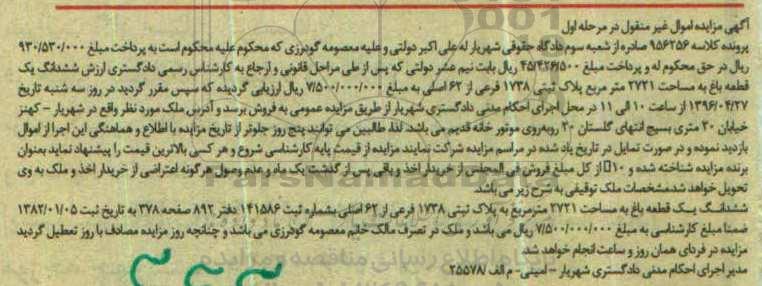 آگهی مزایده اموال غیر منقول در مرحله اول
پرونده کلاسه ۹۵۶۲۵۶ صادره از شعبه سوم دادگاه حقوقی شهریار له علی اکبر دولتی و علیه معصومه گودرزی که محکوم علیه محکوم است به پرداخت مبلغ ۹۳۰/۵۳۰/۰۰۰
ریال در حق محکوم له و پرداخت مبلغ ۴۵/۴۲۶/۵۰۰ ریال بابت نیم عشر دولتی که پس از طی مراحل قانونی و ارجاع به کارشناس رسمی دادگستری ارزش ششدانگ یک
قطعه باغ به مساحت ۲۷۲۱ متر مربع پلاک ثبتی ۱۷۳۸ فرعی از ۶۲ اصلی به مبلغ ۷/۵۰۰/۰۰۰/۰۰۰ ریال ارزیابی گردیده که سپس مقرر گردید در روز سه شنبه تاریخ
۱۳۹۶/۰۴/۲۷ از ساعت ۱۰ الی ۱۱ در محل اجرای احکام مدنی دادگستری شهریار از طریق مزایده عمومی به فروش برسد و آدرس ملک مورد نظر واقع در شهریار – کهنز
خیابان ۲۰ متری بسیج انتهای گلستان ۲۰ روبه‌روی موتور خانه قدیم می باشد لذا طالبین می توانند پنج روز جلوتر از تاریخ مزایده با اطلاع و هماهنگی این اجرا از اموال
بازدید نموده و در صورت تمایل در تاریخ یاد شده در مراسم مزایده شرکت نمایند مزایده از قیمت پایه کارشناسی شروع و هر کسی بالاترین قیمت را پیشنهاد نماید بعنوان
برنده مزایده شناخته شده و ۱۰٪ از کل مبلغ فروش فی المجلس از خریدار اخذ و باقی پس از گذشت یک ماه و عدم وصول هرگونه اعتراضی از خریدار اخذ و ملک به وی
تحویل خواهد شد مشخصات ملک توقیفی به شرح زیر می باشد
ششدانگ یک قطعه باغ به مساحت ۲۷۲۱ مترمربع به پلاک ثبتی ۱۷۳۸ فرعی از ۶۲ اصلی بشماره ثبت ۱۴۱۵۸۶ دفتر ۸۹۲ صفحه ۳۷۸ به تاریخ ثبت ۱۳۸۲/۰۱/۰۵
ضمنا مبلغ کارشناسی به مبلغ ۷/۵۰۰/۰۰۰/۰۰۰ ریال می باشد و ملک در تصرف مالک خانم معصومه گودرزی می باشد و چنانچه روز مزایده مصادف با روز تعطیل گردید
مزایده در فردای همان روز و ساعت انجام خواهد شد
مدیر اجرای احکام مدنی دادگستری شهریار – امینی- م الف /۲۵۵۷۸